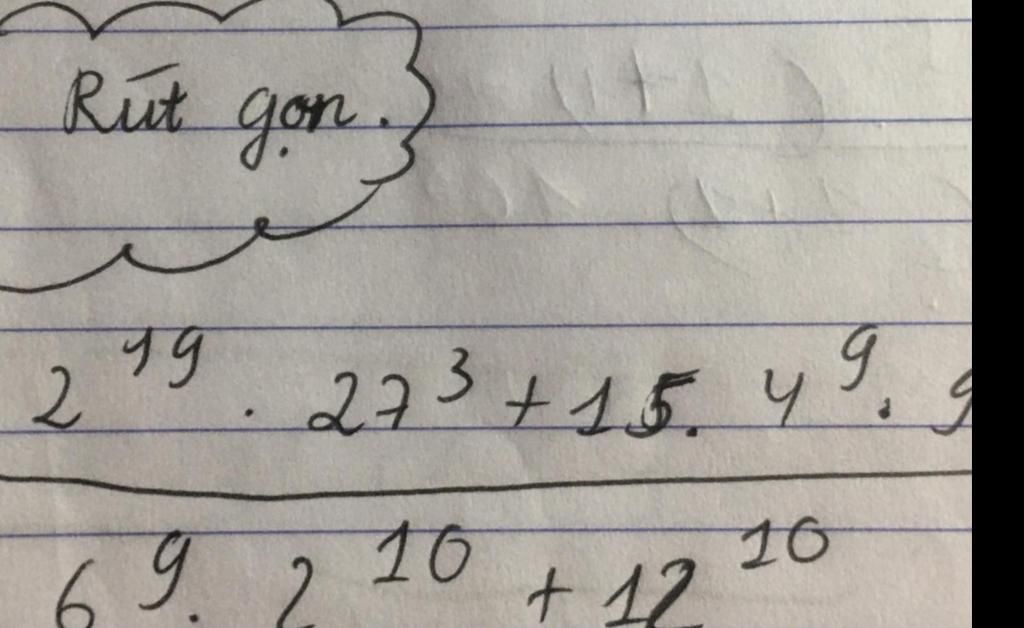 Rút gọn.
2^19 . 27^3 + 15. 4^9 . 9
6^9 . 2^10 + 12^10